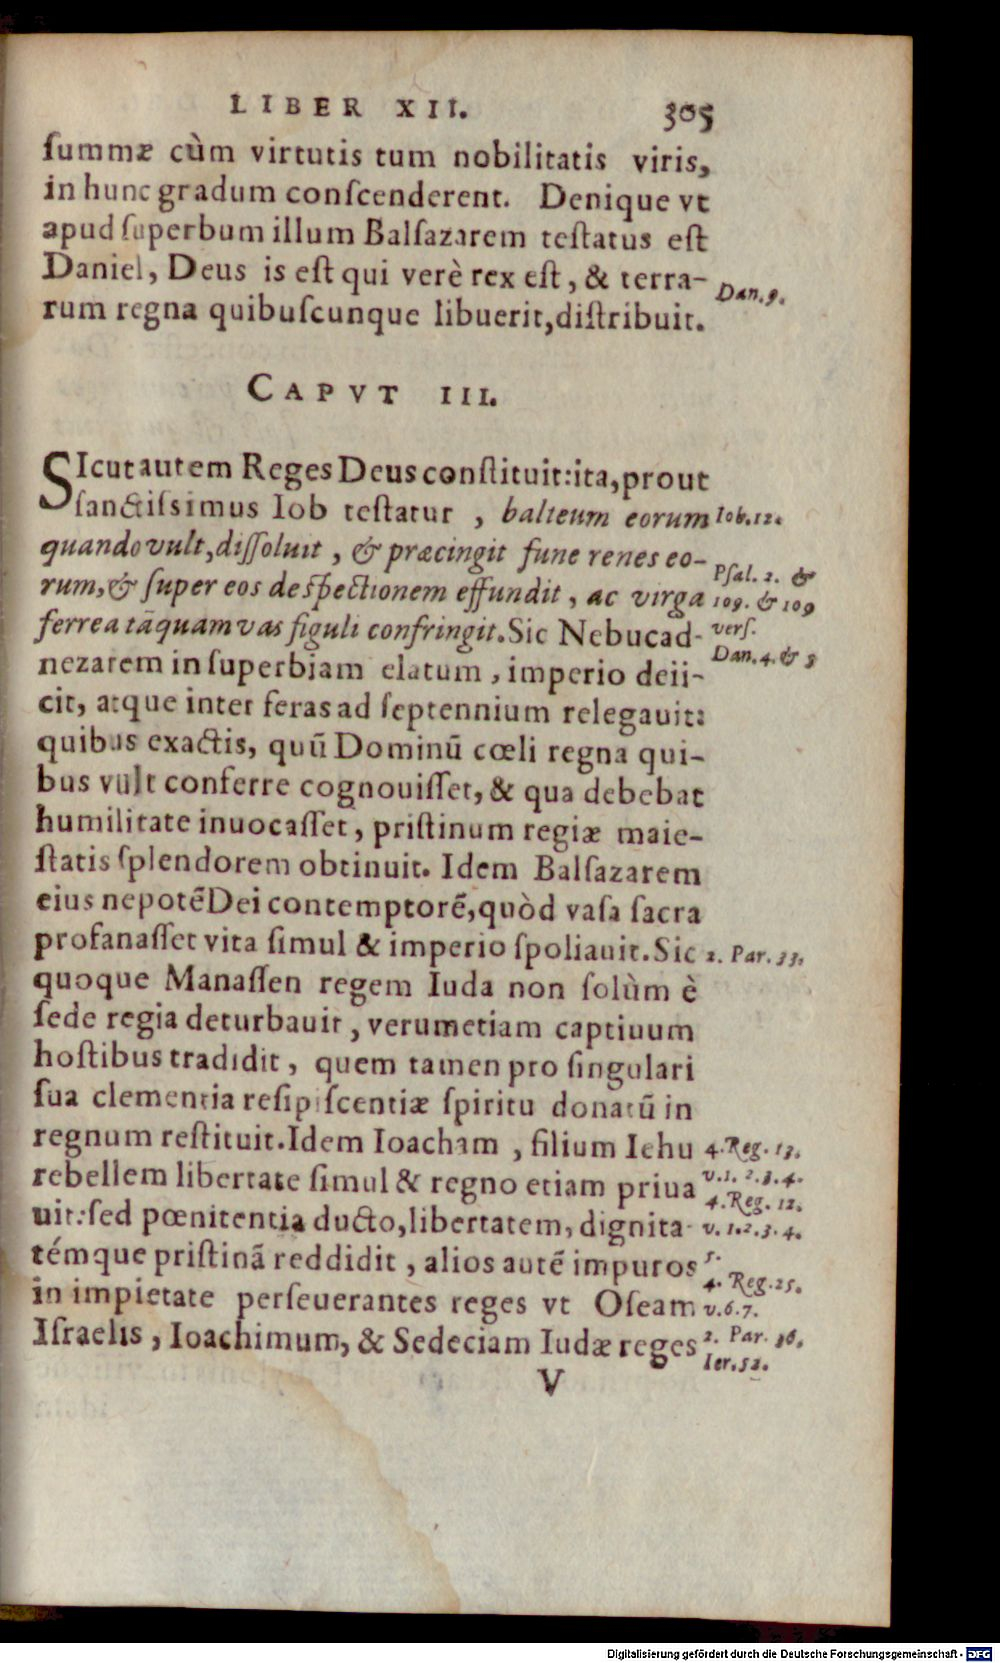 LIBER XII. 305
ſummæ cùm virtutis tum nobilitatis viris,
in hunc gradum conſcenderent. Denique vt
apud ſuperbum illum Balſazarem teſtatus eſt
Daniel, Deus is eſt qui verè rex eſt, & terra-
Dan. 9.
rum regna quibuſcunque libuerit, diſtribuit.
CAPVT III.
SIcut autem Reges Deus conſtituit: ita, prout
ſanctiſsimus Iob teſtatur, balteum eorum
Iob. 12.
quando vult, diſſoluit, & præcingit fune renes eo-
rum, & ſuper eos deſpectionem effundit, ac virga
Pſal. 2. &
109. & 109
ferrea tãquam vas figuli confringit. Sic Nebucad-
verſ.
nezarem in ſuperbiam elatum, imperio deii-
Dan. 4. & 5
cit, atque inter feras ad ſeptennium relegauit:
quibus exactis, quũ Dominũ cœli regna qui-
bus vult conferre cognouiſſet, & qua debebat
humilitate inuocaſſet, priſtinum regiæ maie-
ſtatis ſplendorem obtinuit. Idem Balſazarem
eius nepotẽ Dei contemptorẽ, quòd vaſa ſacra
profanaſſet vita ſimul & imperio ſpoliauit. Sic
2. Par. 33.
quoque Manaſſen regem Iuda non ſolùm è
ſede regia deturbauit, verumetiam captiuum
hoſtibus tradidit, quem tamen pro ſingulari
ſua clementia reſipiſcentiæ ſpiritu donatũ in
regnum reſtituit. Idem Ioacham, filium Iehu
4. Reg. 13.
rebellem libertate ſimul & regno etiam priua
v. 1. 2. 3. 4.
4. Reg. 12.
uit: ſed pœnitentia ducto, libertatem, dignita-
v. 1. 2. 3. 4.
témque priſtinã reddidit, alios autẽ impuros
5.
4. Reg. 25.
in impietate perſeuerantes reges vt Oſeam
v. 6. 7.
Iſraelis, Ioachimum, & Sedeciam Iudæ reges
2. Par. 36.
Ier. 52.
V
Digitalisierung gefördert durch die Deutsche Forschungsgemeinschaft - DFG